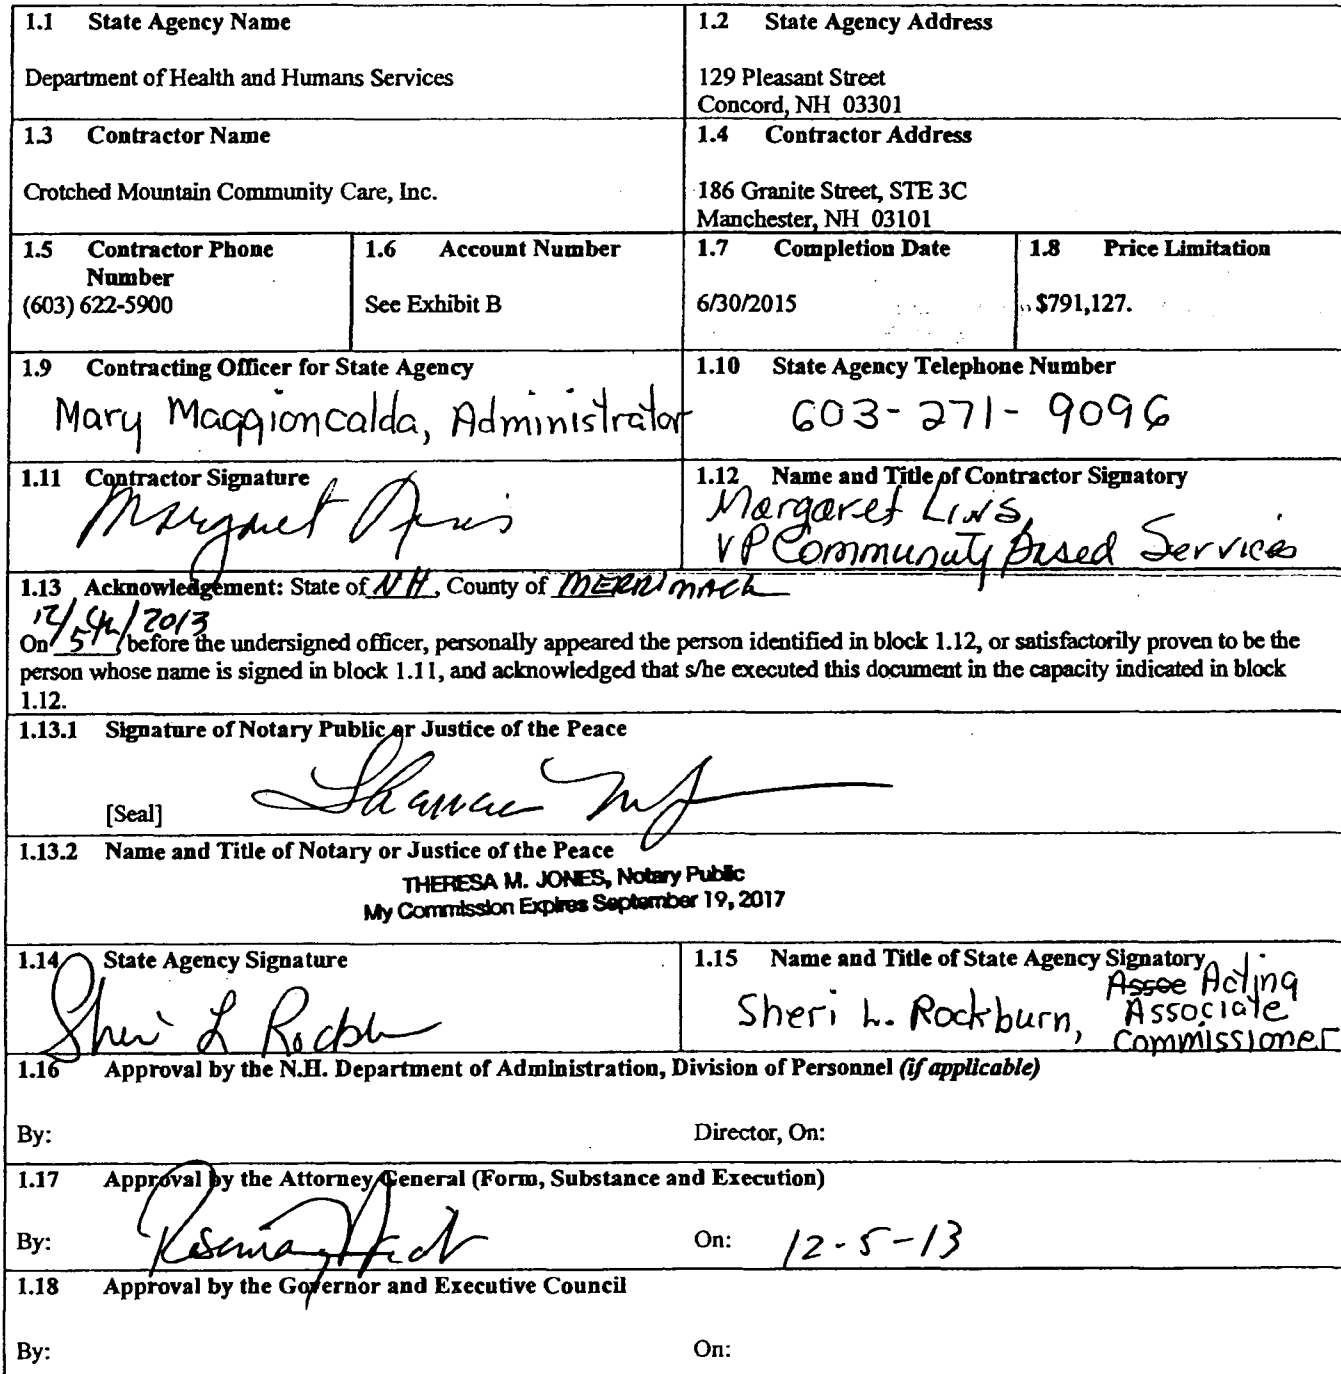 1.1 State Agency Name
Department of Health and Humans Services
1.2 State Agency Address
129 Pleasant Street
Concord, NH 03301
1.3 Contractor Name
Crotched Mountain Community Care, Inc.
1.4 Contractor Address
186 Granite Street, STE 3C
Manchester, NH 03101
1.5 Contractor Phone
Number
(603) 622-5900
1.6 Account Number
See Exhibit B
1.7 Completion Date
6/30/2015
1.8 Price Limitation
$791,127.
1.9 Contracting Officer for State Agency
Mary Maggioncalda, Administrator
1.10 State Agency Telephone Number
603-271-9096
1.11 Contractor Signature
Margaret
1.12 Name and Title of Contractor Signatory
Margaret
VP Community Based Services
1.13 Acknowledgement: State of NH, County of MERRIMACK
12/5th/2013
On before the undersigned officer, personally appeared the person identified in block 1.12, or satisfactorily proven to be the
person whose name is signed in block 1.11, and acknowledged that s/he executed this document in the capacity indicated in block
1.12.
1.13.1 Signature of Notary Public or Justice of the Peace
[Seal]
1.13.2 Name and Title of Notary or Justice of the Peace
THERESA M. JONES, Notary Public
My Commission Expires September 19, 2017
1.14 State Agency Signature
Sheri L Rockburn
1.15 Name and Title of State Agency Signatory
Assoe Acting
Sheri L. Rockburn, Associate
Commissioner
1.16 Approval by the N.H. Department of Administration, Division of Personnel (if applicable)
By:
Director, On:
1.17 Approval by the Attorney General (Form, Substance and Execution)
By:
On: 12-5-13
1.18 Approval by the Governor and Executive Council
By:
On: